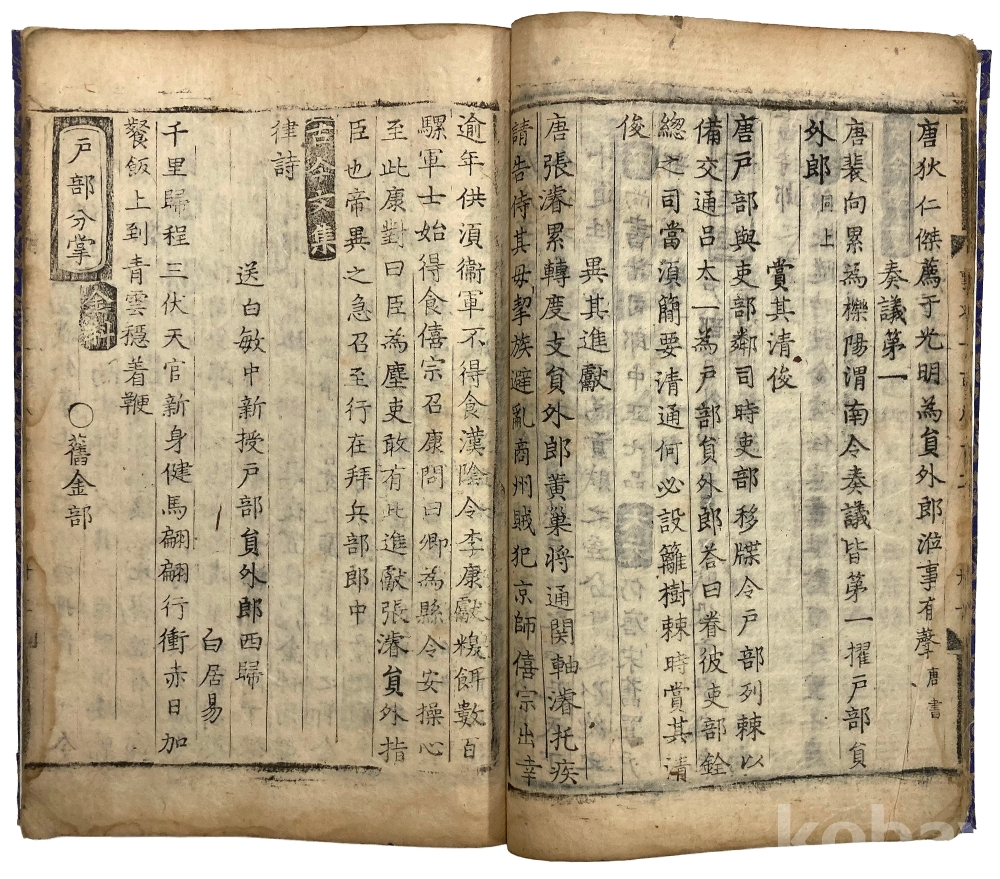 唐狄仁傑薦于光明為貟外郎涖事有聲唐書
奏議第一
唐裴向累為櫟陽渭南令奏議皆第一擢戸部貟
外郎同上
賞其清俊
唐戸部與吏部鄰司時吏部移牒令戸部列棘以
備交通呂太一為戸部貟外郎荅曰眷彼吏部銓
緫之司當湏簡要清通何必設籬樹棘時賞其清
俊
異其進獻
唐張濬累轉度支貟外郎黄巢将通関軸濬托疾
請告侍其母挈族避亂商州賊犯京師僖宗出幸
逾年供湏衞軍不得食漢陰令李康獻糗餌數百
騾軍士始得食僖宗召康問曰卿為縣令安操心
至此康對曰臣為塵吏敢有此進獻張濬貟外指
臣也帝異之急召至行在拜兵部郎中
古今文集
律詩
送白敏中新授戸部貟外郎西歸
白居易
千里歸程三伏天官新身健馬翩翩行衝赤日加
餐飯上到青雲穩着鞭
戸部分掌
○舊金部
koba